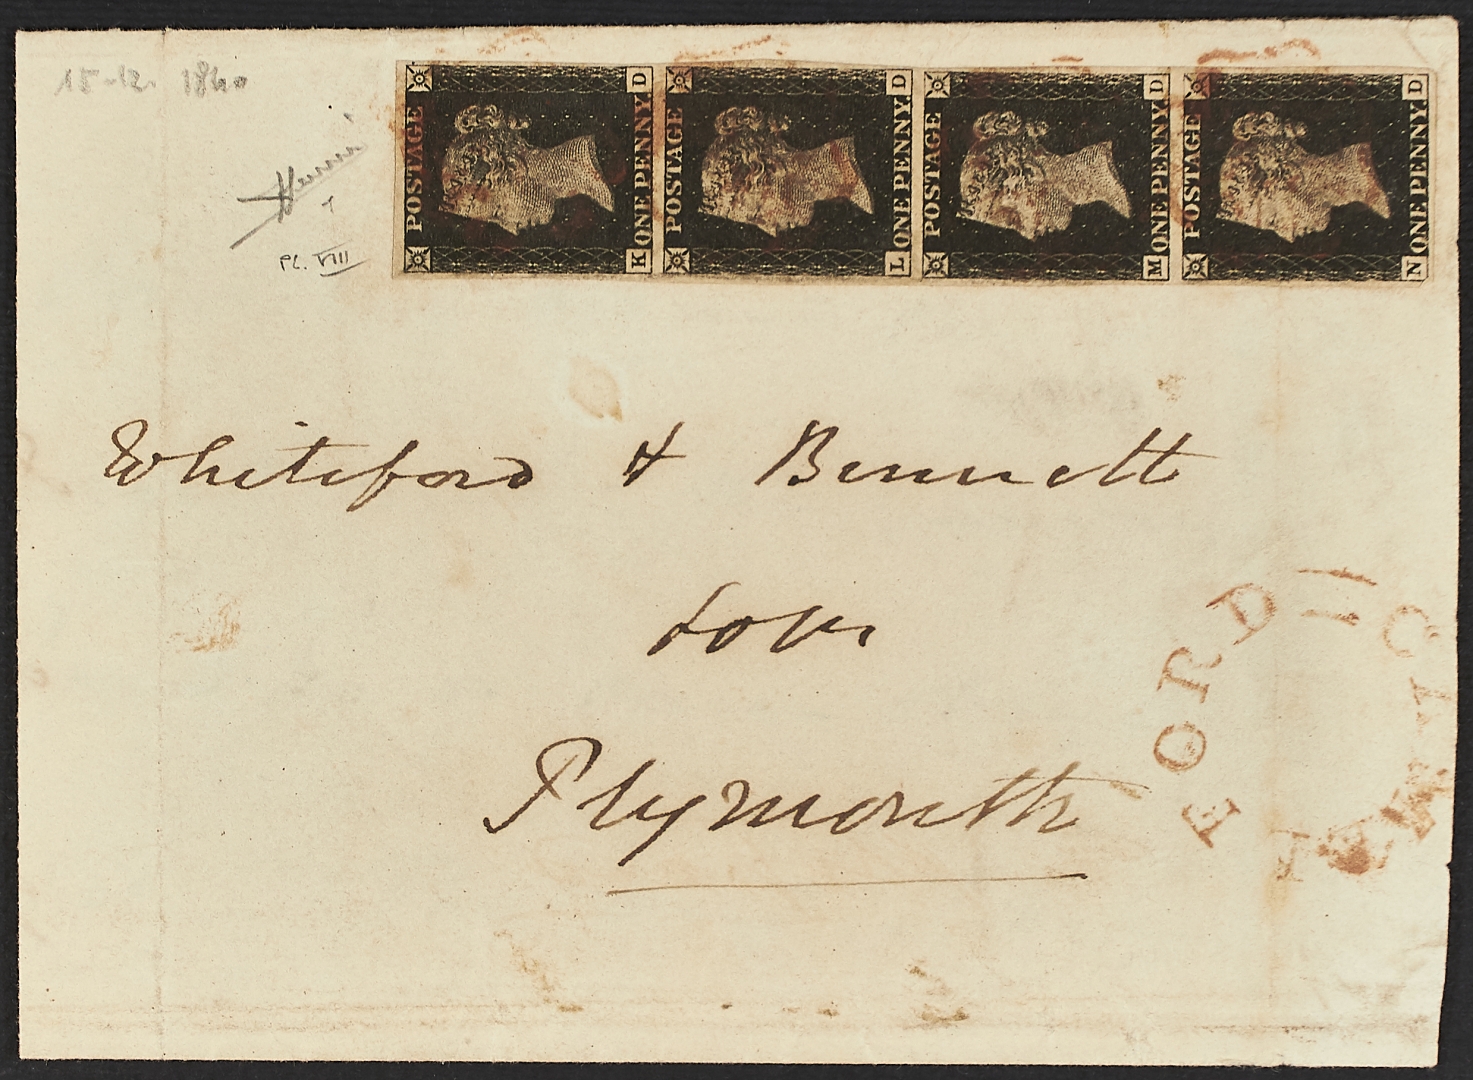 15-12. 1840
PL. VIII
POSTAGE ONE PENNY K D
POSTAGE ONE PENNY L D
POSTAGE ONE PENNY M D
POSTAGE ONE PENNY N D
Whiteford & Bennett
Plymouth
FORD